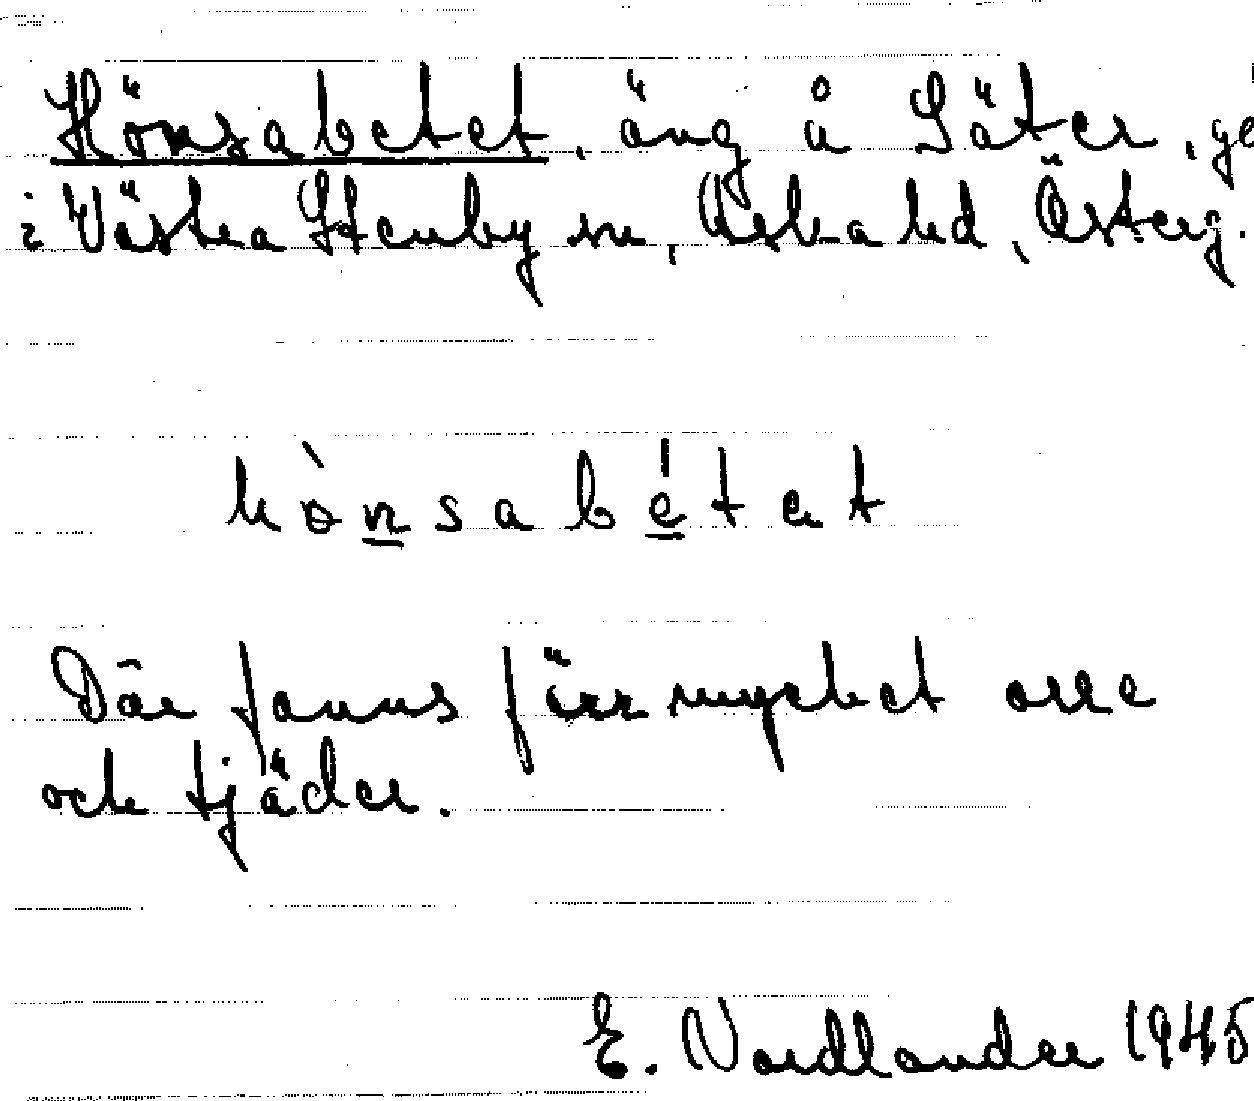 Hönsabetet, äng å Säter, ga
i Västra Stenby sn, Aska hd, Österg.
hònsabétet
Där fanns förr mycket orre
och tjäder.
E. Nordlander 1945